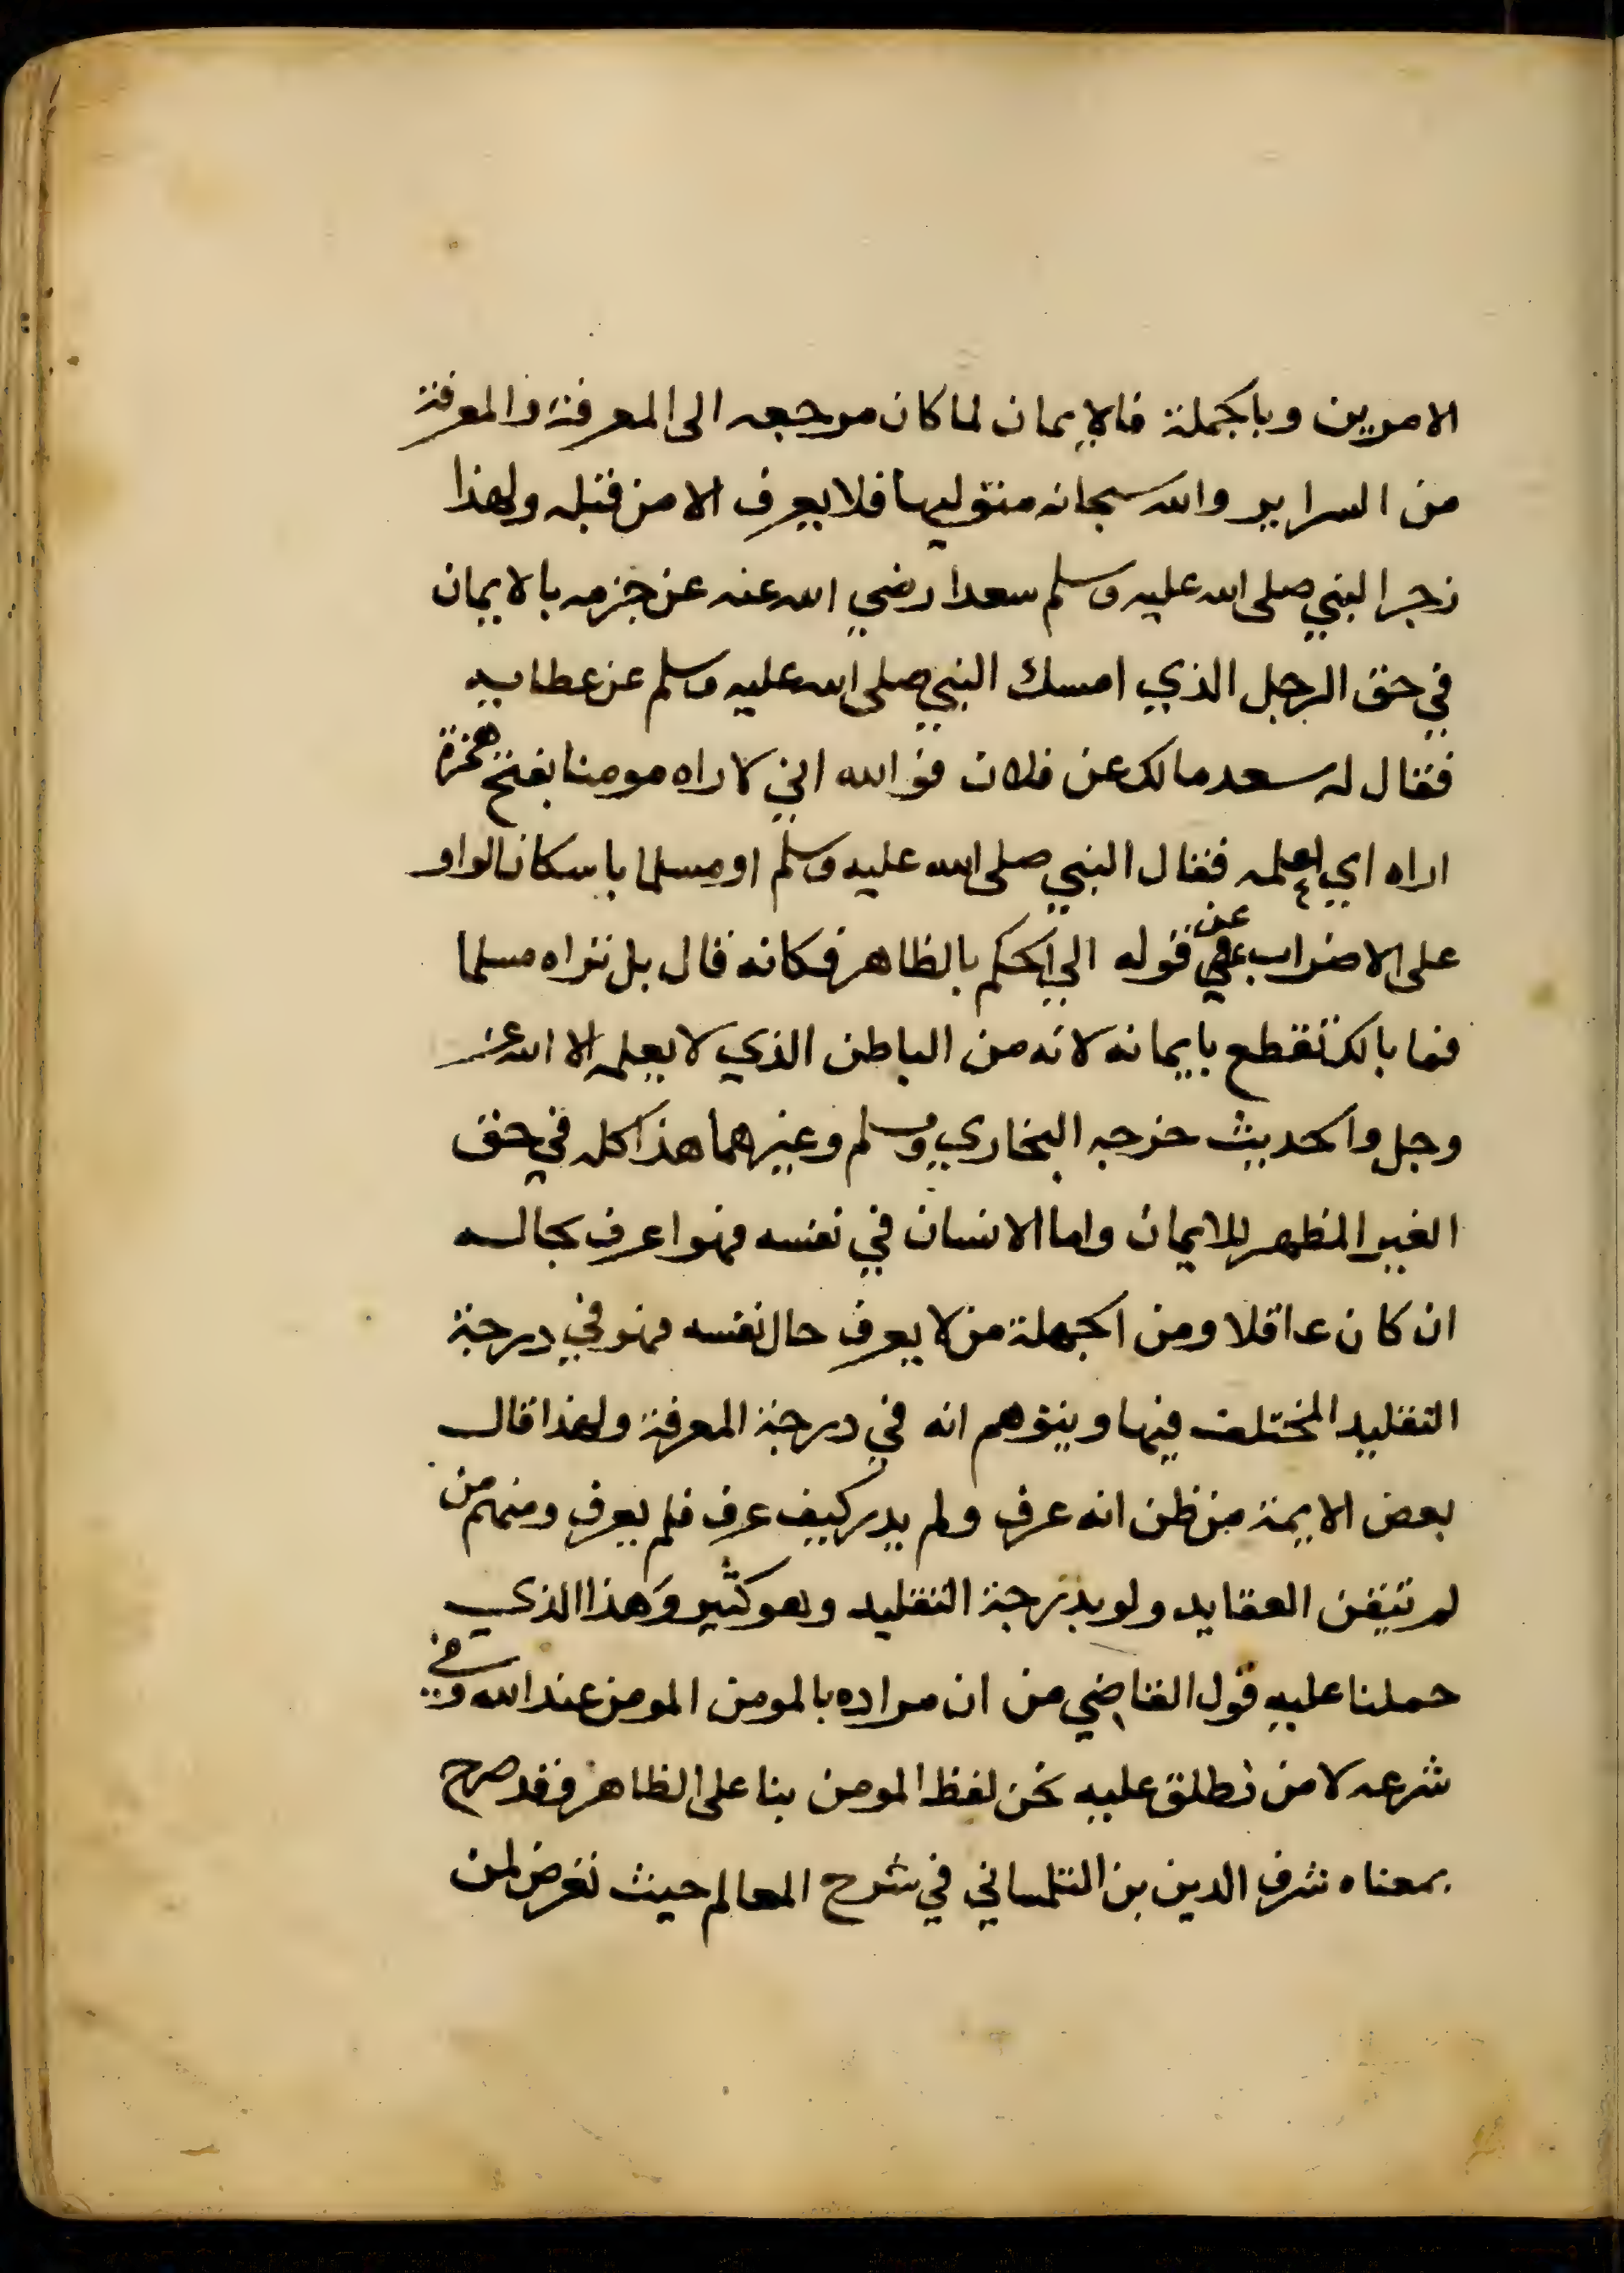 الامرين وبالجملة فالايمان لما كان مرجعه الى المعرفة والمعرفة
من السراير والله سبحانه متوليها فلا يعرف الا من قبله ولهذا
زجر النبي صلى الله عليه وسلم سعدا رضي الله عنه عن جزمه بالايمان
في حق الرجل الذي امسك النبي صلى الله عليه وسلم عن عطايه
فقال له سعد مالك عن فلان فوالله اني لاراه مومنا بفتح همزة
اراه اي اعلمه فقال النبي صلى الله عليه وسلم او مسلما باسكان الواو
على الاضراب عن قوله الى الحكم بالظاهر فكانه قال بل تراه مسلما
فما بالك تقطع بايمانه لانه من الباطن الذي لا يعلمه الا الله عز
وجل والحديث خرجه البخاري ومسلم وغيرهما هذا كله في حق
الغير المظهر للايمان واما الانسان في نفسه فهو اعرف بحاله
ان كان عاقلا ومن الجهلة من لا يعرف حال نفسه فهو في درجة
التقليد المختلف فيها ويتوهم انه في درجة المعرفة ولهذا قال
بعض الايمة من ظن انه عرف ولم يدر كيف عرف فلم يعرف ومنهم من
لم تتيقن العقايد ولو بدرجة التقليد وهو كثير وهذا الذي
حملنا عليه قول القاضي من ان مراده بالمومن المومن عند الله وفي
شرعه لا من نطلق عليه نحن لفظ المومن بنا على الظاهر فقد صرح
بمعناه شرف الدين بن التلمساني في شرح المعالم حيث تعرض لمن